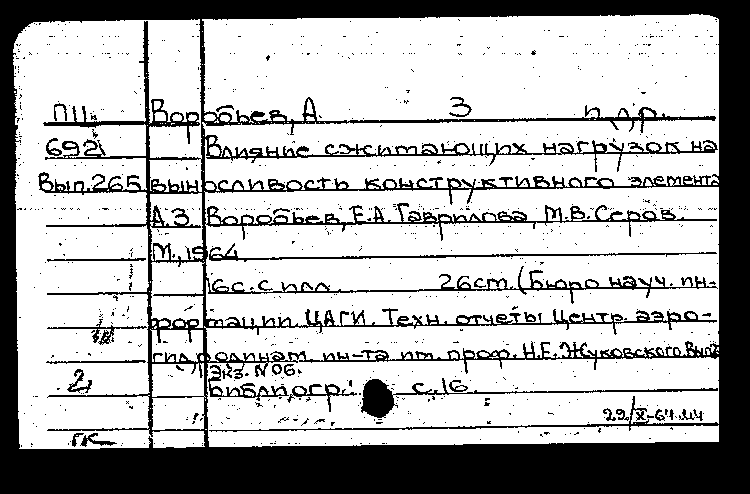 ПЦ Воробьев, А З п.л.р.
692 Влияние сжимающих нагрузок на
Вып.265 выносливость конструктивного элемента
А.З. Воробьев, Е.А. Гаврилова, М.В. Серов.
М., 1964.
16с. с илл. 26см. (Бюро науч. ин-
формации. ЦАГИ. Техн. отчеты Центр. аэро-
гидродинам. ин-та им. проф. Н.Е. Жуковского. Вып.
Экз. №06.
2 Библиогр.: с.16.
29/X-64
ГК